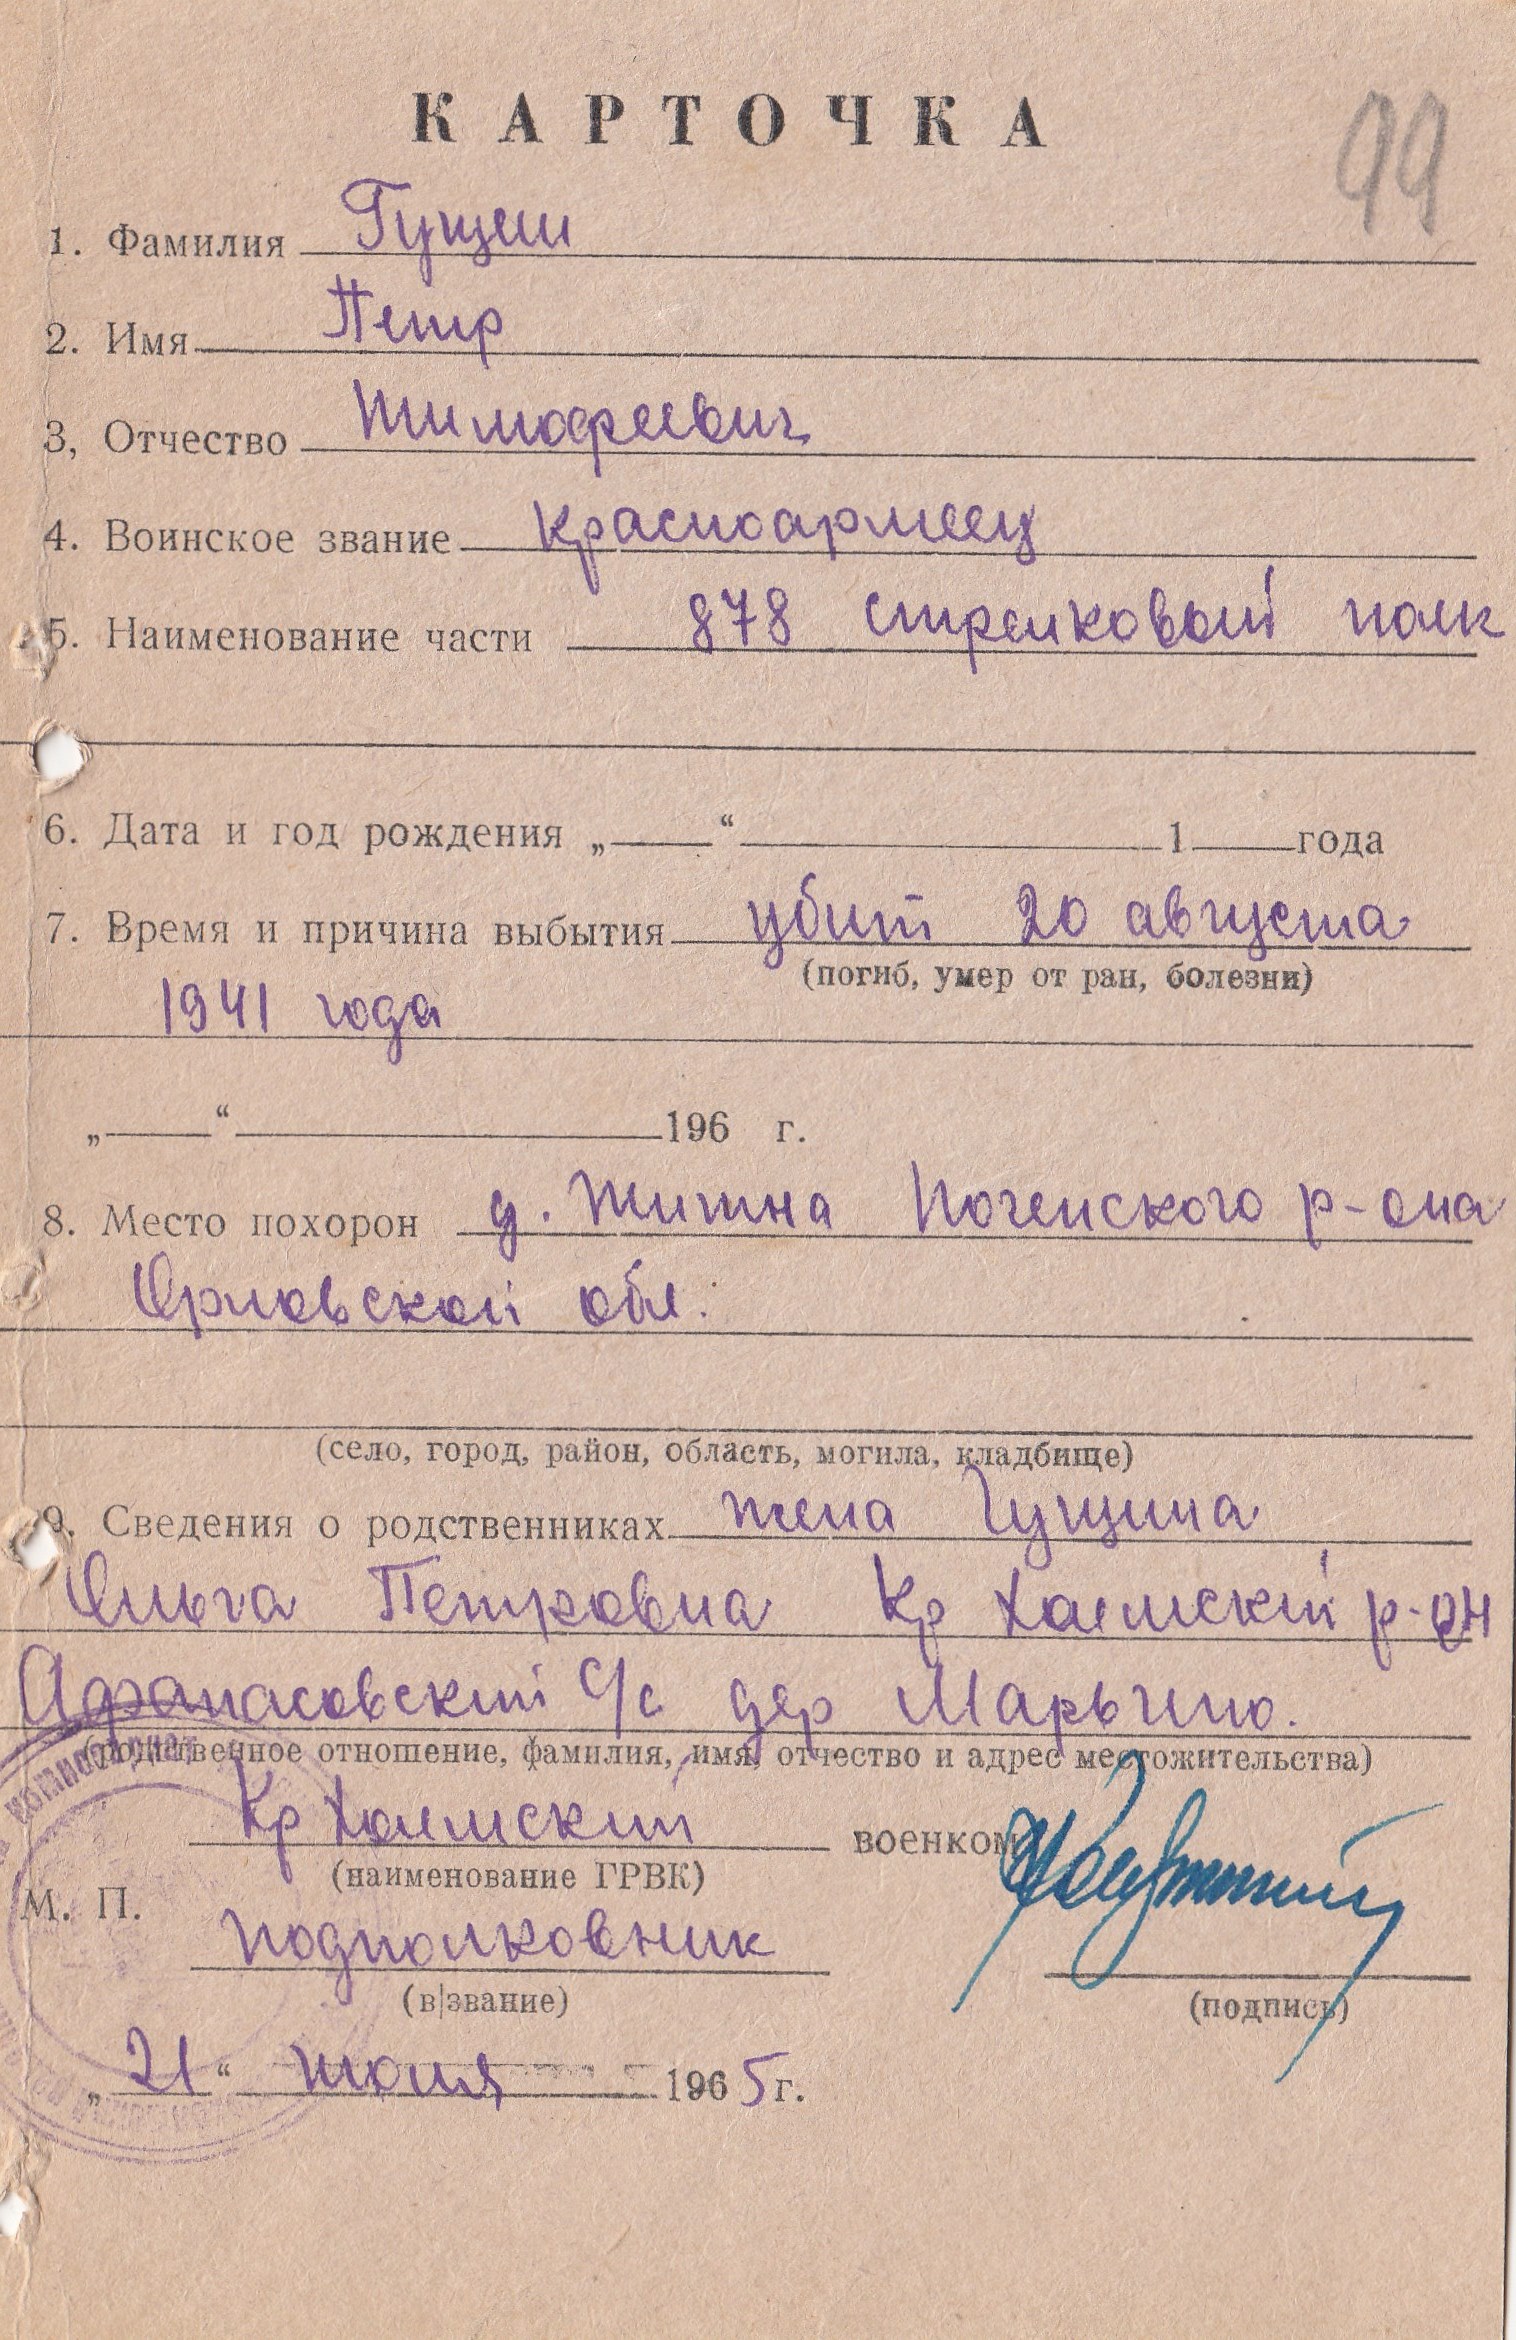 99
КАРТОЧКА
1. Фамилия Гущин
2. Имя Петр
3, Отчество Тимофеевич
4. Воинское звание красноармеец
5. Наименование части 878 стрелковый полк
6. Дата и год рождения „ “ 1 года
7. Время и причина выбытия убит 20 августа
(погиб, умер от ран, болезни)
1941 года
„ “ 196 г.
8. Место похорон д. Житня Почепского р-она
Орловской обл.
(село, город, район, область, могила, кладбище)
9. Сведения о родственниках жена Гущина
Ольга Петровна Кр Холмский р-он
Афанасовский с/с дер Марьино.
(родственное отношение, фамилия, имя, отчество и адрес местожительства)
Кр Холмский военком
(наименование ГРВК)
М. П.
подполковник
(в/звание) (подпись)
„21“ июня 1965 г.